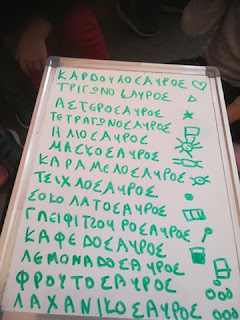 ΚΑΡΔΟΥΛΟΣΑΥΡΟΣ
ΤΡΙΓΩΝΟΣΑΥΡΟΣ
ΑΣΤΕΡΟΣΑΥΡΟΣ
ΤΕΤΡΑΓΩΝΟΣΑΥΡΟΣ
ΗΛΙΟΣΑΥΡΟΣ
ΜΑΣΚΟΣΑΥΡΟΣ
ΚΑΡΑΜΕΛΟΣΑΥΡΟΣ
ΤΣΙΧΛΟΣΑΥΡΟΣ
ΣΟΚΟΛΑΤΟΣΑΥΡΟΣ
ΓΛΕΙΦΙΤΖΟΥΡΟΣΑΥΡΟΣ
ΚΑΦΕΔΟΣΑΥΡΟΣ
ΛΕΜΟΝΑΔΟΣΑΥΡΟΣ
ΦΡΟΥΤΟΣΑΥΡΟΣ
ΛΑΧΑΝΙΚΟΣΑΥΡΟΣ